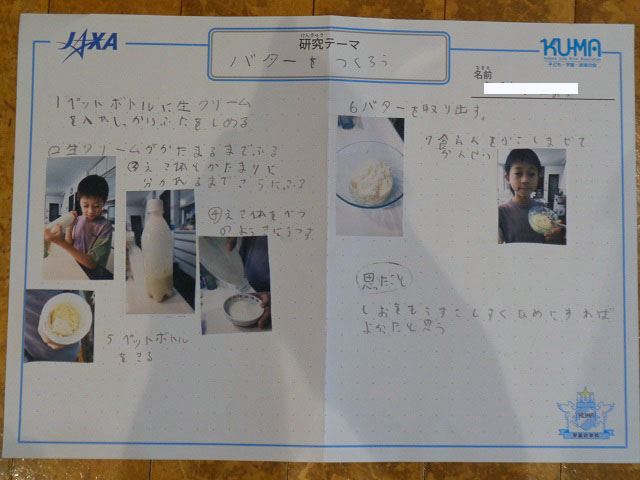 JAXA
けんきゅう
研究テーマ
バターをつくろう
KUMA
子ども・宇宙・未来の会
なまえ
名前
1ペットボトルに生クリーム
を入れしっかりふたをしめる
②生クリームがかたまるまでふる
③えき体とかたまりに
分かれるまでさらにふる
④えき体をべつ
のようきにうつす
5 ペットボトル
をきる
6バターを取り出す。
7食えんをかこしまぜて
かんせい
思ったこと
しおをもうすこしすくなめにすれば
よかたと思う
KUMA
宇宙の学校